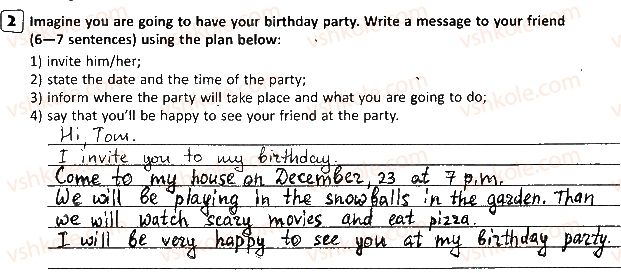 2 Imagine you are going to have your birthday party. Write a message to your friend
(6—7 sentences) using the plan below:
1) invite him/her;
2) state the date and the time of the party;
3) inform where the party will take place and what you are going to do;
4) say that you'll be happy to see your friend at the party.
Hi, Tom.
I invite you to my birthday.
Come to my house on December, 23 at 7 p.m.
We will be playing in the snowballs in the garden. Than
we will watch scary movies and eat pizza.
I will be very happy to see you at my birthday party.